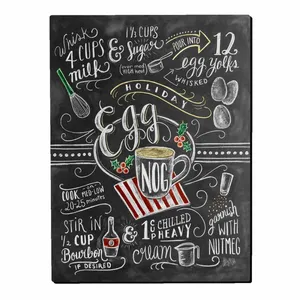 Whisk
4 CUPS
milk
1 1/2 CUPS
& Sugar
POUR INTO
12
egg yolks
WHISKED
HOLIDAY
Egg
NOG
COOK ON
MED-LOW
20-25 minutes
STIR IN
1/2 CUP
Bourbon
IF DESIRED
& 1 C CHILLED
HEAVY
cream
garnish
WITH
NUTMEG